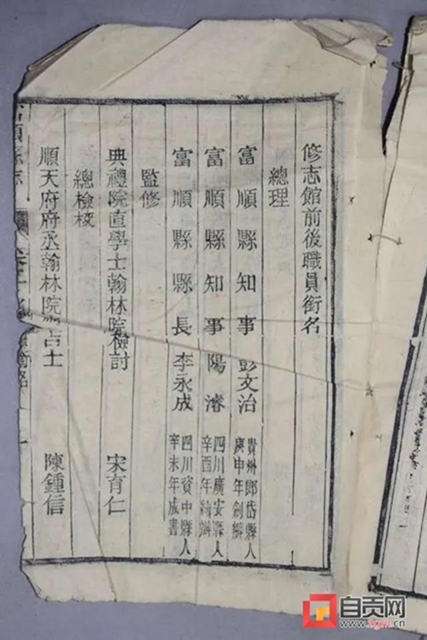 修志館前後職員銜名
總理
富順縣知事彭文治 貴州郎岱縣人
庚申年創辦
富順縣知事陽濬 四川廣安縣人
辛酉年續辦
富順縣縣長李永成 四川資中縣人
辛未年成書
監修
典禮院直學士翰林院檢討 宋育仁
總檢校
順天府府丞翰林院吉士 陳鍾信
順縣志
自贡网